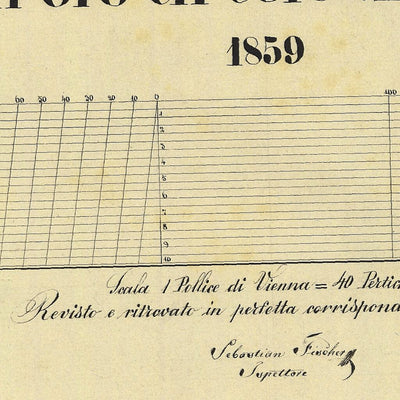 1859
60 50 40 30 20 10 0 100
1
2
3
4
5
6
7
8
9
10
Scala 1 Pollice di Vienna = 40 Pertic
Revisto e ritrovato in perfetta corrispon
Sebastian Fischer
Inspettore